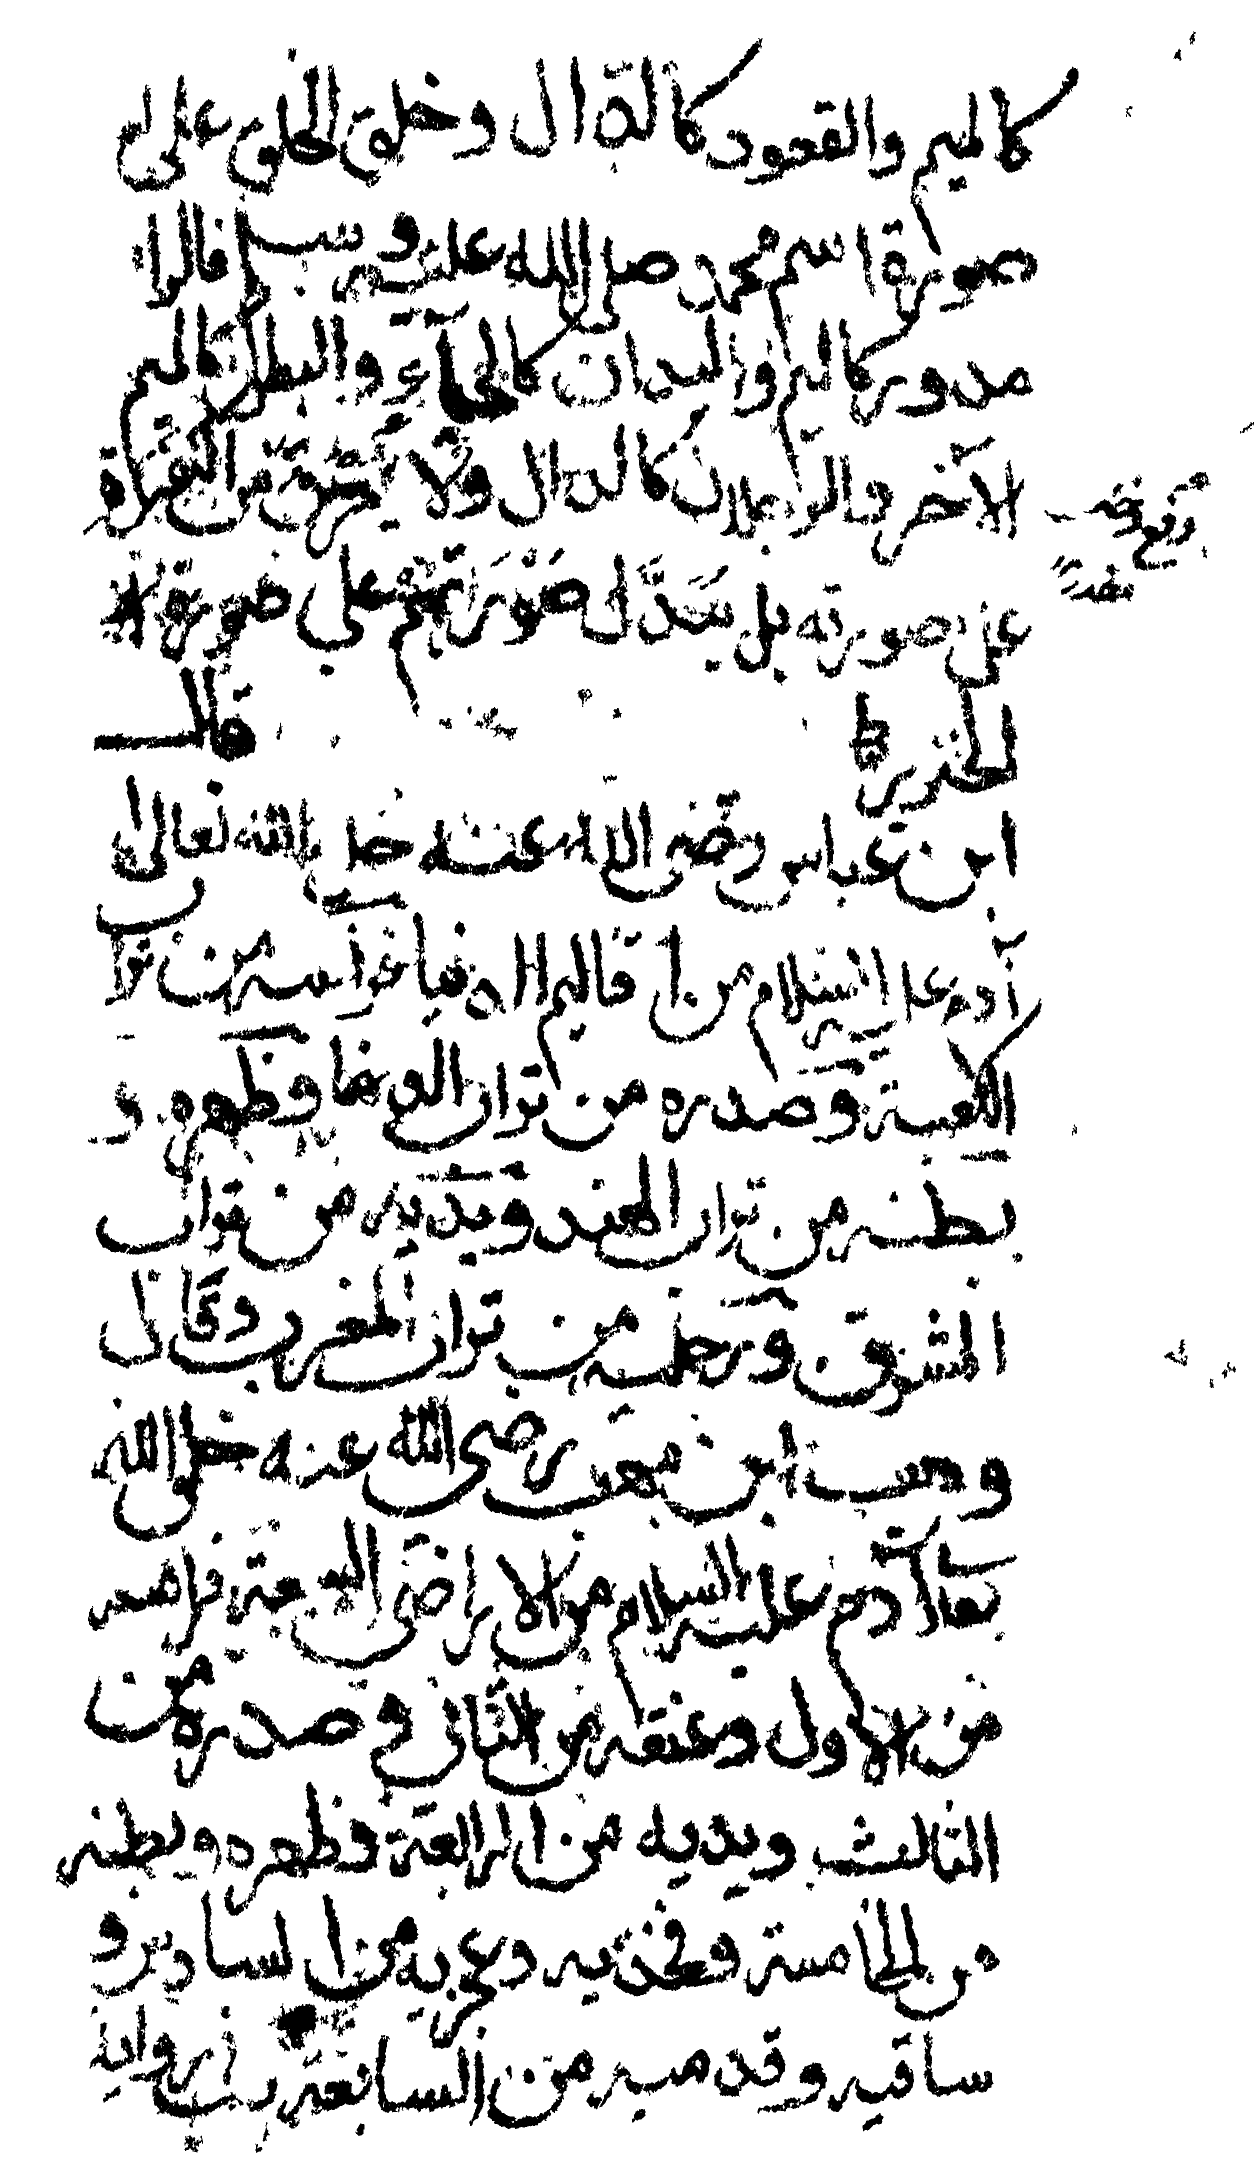 كالميم والقعود كالدال وخلق الخلق على
صورة اسم محمد صلى الله عليه وسلم فالراس
مدور كالميم واليدان كالحاء والبطن كالميم
الآخر والرجلان كالدال ولا يحرق من الكفرة
على صورته بل يبدل صورتهم على صورة
الخنزير قال
ابن عباس رضى الله عنه خلق الله تعالى
آدم عليه السلام من اقاليم الدنيا فراسه من تراب
الكعبة وصدره من تراب الدهنا وظهره و
بطنه من تراب الهند ويديه من تراب
المشرق ورجليه من تراب المغرب وقال
وهب ابن منبه رضى الله عنه خلق الله
تعالى آدم عليه السلام من الاراضى السبعة فراسه
من الاول وعنقه من الثانى وصدره من
الثالث ويديه من الرابعة وظهره وبطنه
من الخامسة وفخذيه وعجزيه من السادس و
ساقيه وقدميه من السابعة وفى رواية